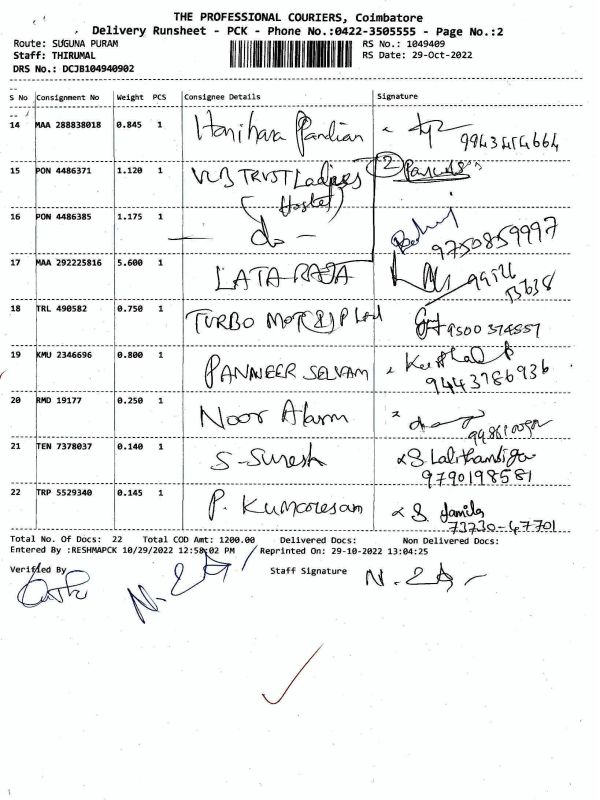 THE PROFESSIONAL COURIERS, Coimbatore
Delivery Runsheet - PCK - Phone No.:0422-3505555 - Page No.:2
Route: SUGUNA PURAM
RS No.: 1049409
Staff: THIRUMAL
RS Date: 29-Oct-2022
DRS No.: DCJB104940902
S No Consignment No Weight PCS Consignee Details Signature
14 MAA 288838018 0.845 1 Harihara Pandian
99434 54664
15 PON 4486371 1.120 1 VLB TRUST Ladies 2 Parcels
(Hostel)
16 PON 4486385 1.175 1 - do -
9750859997
17 MAA 292225816 5.600 1 LATA RAJA
18 TRL 490582 0.750 1 TURBO MOT(I) P Ltd
9500 374557
19 KMU 2346696 0.800 1 PANNEER SELVAM
9443786936
20 RMD 19177 0.250 1 Noor Alam
21 TEN 7378037 0.140 1 S-Suresh S. Lalithambiga
9790198581
22 TRP 5529340 0.145 1 P. Kumaresan S. Jamila
73730-47701
Total No. Of Docs: 22 Total COD Amt: 1200.00 Delivered Docs: Non Delivered Docs:
Entered By :RESHMAPCK 10/29/2022 12:58:02 PM Reprinted On: 29-10-2022 13:04:25
Verified By Staff Signature